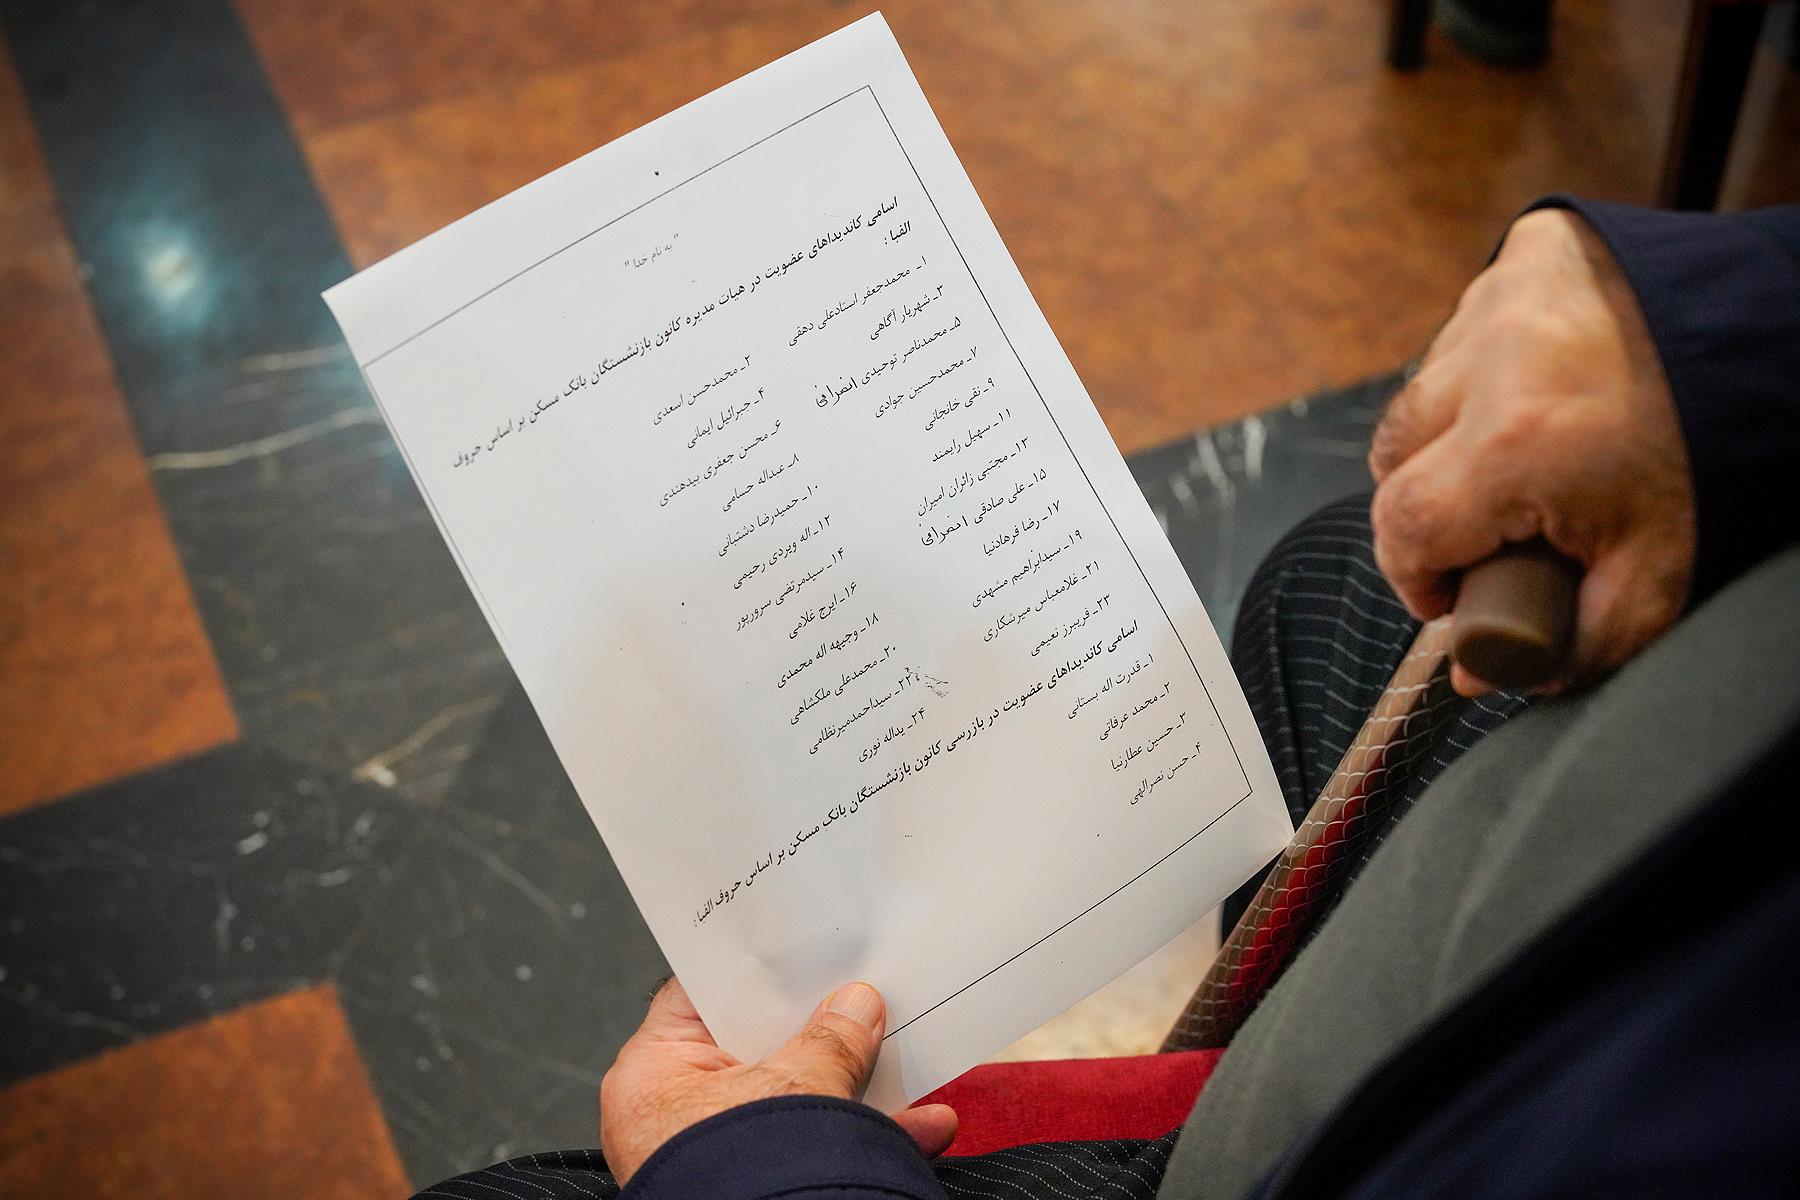 " به نام خدا "
اسامی کاندیداهای عضویت در هیات مدیره کانون بازنشستگان بانک مسکن بر اساس حروف
الفبا :
۱ـ محمدجعفر استادعلی دهقی ۲ـ محمدحسن اسعدی
۳ـ شهریار آگاهی ۴ـ جبرائیل ایمانی
۵ـ محمدناصر توحیدی انصرافی ۶ـ محسن جعفری بیدهندی
۷ـ محمدحسین جوادی ۸ـ عبداله حسامی
۹ـ نقی خانجانی ۱۰ـ حمیدرضا دشتبانی
۱۱ـ سهیل رایمند ۱۲ـ اله ویردی رحیمی
۱۳ـ مجتبی زائران امیران ۱۴ـ سیدمرتضی سرورپور
۱۵ـ علی صادقی انصرافی ۱۶ـ ایرج غلامی
۱۷ـ رضا فرهادنیا ۱۸ـ وجیهه اله محمدی
۱۹ـ سیدابراهیم مشهدی ۲۰ـ محمدعلی ملکشاهی
۲۱ـ غلامعباس میرشکاری ۲۲ـ سیداحمدمیرنظامی
۲۳ـ فریبرز نعیمی ۲۴ـ یداله نوری
اسامی کاندیداهای عضویت در بازرسی کانون بازنشستگان بانک مسکن بر اساس حروف الفبا :
۱ـ قدرت اله بستانی
۲ـ محمد عرفاتی
۳ـ حسین عطارنیا
۴ـ حسن نصرالهی